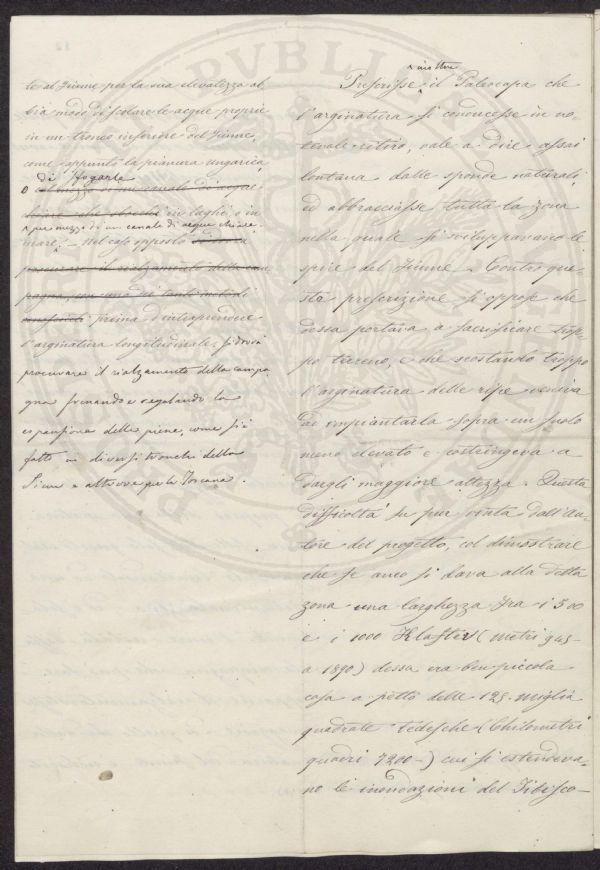 te al Fiume per la sua elevatezza ab
bia modo di scolare le acque proprie
in un tronco inferiore del Fiume,
come appunto la pianura ungarica,
di sfogarle
o col mezzo di un canale di acque
chiare che sbocchi in laghi o in
× per mezzo di un canale di acque chiare.
mare. × Nel caso opposto
procurare il rialzamento della cam
pagna, con uno dei tanti metodi
conosciuti prima d'intraprendere
l'arginatura longitudinale, si dovrà
procurare il rialzamento della campa
gna frenando e regolando la
espansione delle piene, come si è
fatto in diversi tronchi della
Sieve e altrove per la Toscana.
× inoltre
Prescrisse × il Paleocapa che
l'arginatura si conducesse in no-
tevole ritiro, vale a dire assai
lontana dalle sponde naturali,
ed abbracciasse tutta la zona
nella quale si sviluppavano le
spire del Fiume. Contro que-
sta prescrizione si oppose che
dessa portava a sacrificare trop-
po terreno, e che scostando troppo
l'arginatura delle ripe veniva
ad impiantarla sopra un suolo
meno elevato e costringeva a
dargli maggiore altezza. Questa
difficoltà fu pur vinta dall'Au-
tore del progetto, col dimostrare
che se anco si dava alla detta
zona una larghezza fra i 500
e i 1000 Klafter (metri 945-
a 1890) dessa era ben piccola
cosa a petto delle 125 miglia
quadrate tedesche (Chilometri
quadri 7200-) cui si estendeva-
no le inondazioni del Tibisco-